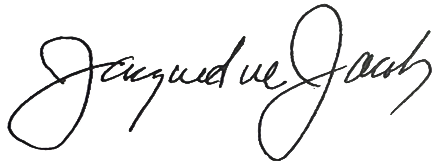 Jacqueline Jacobs